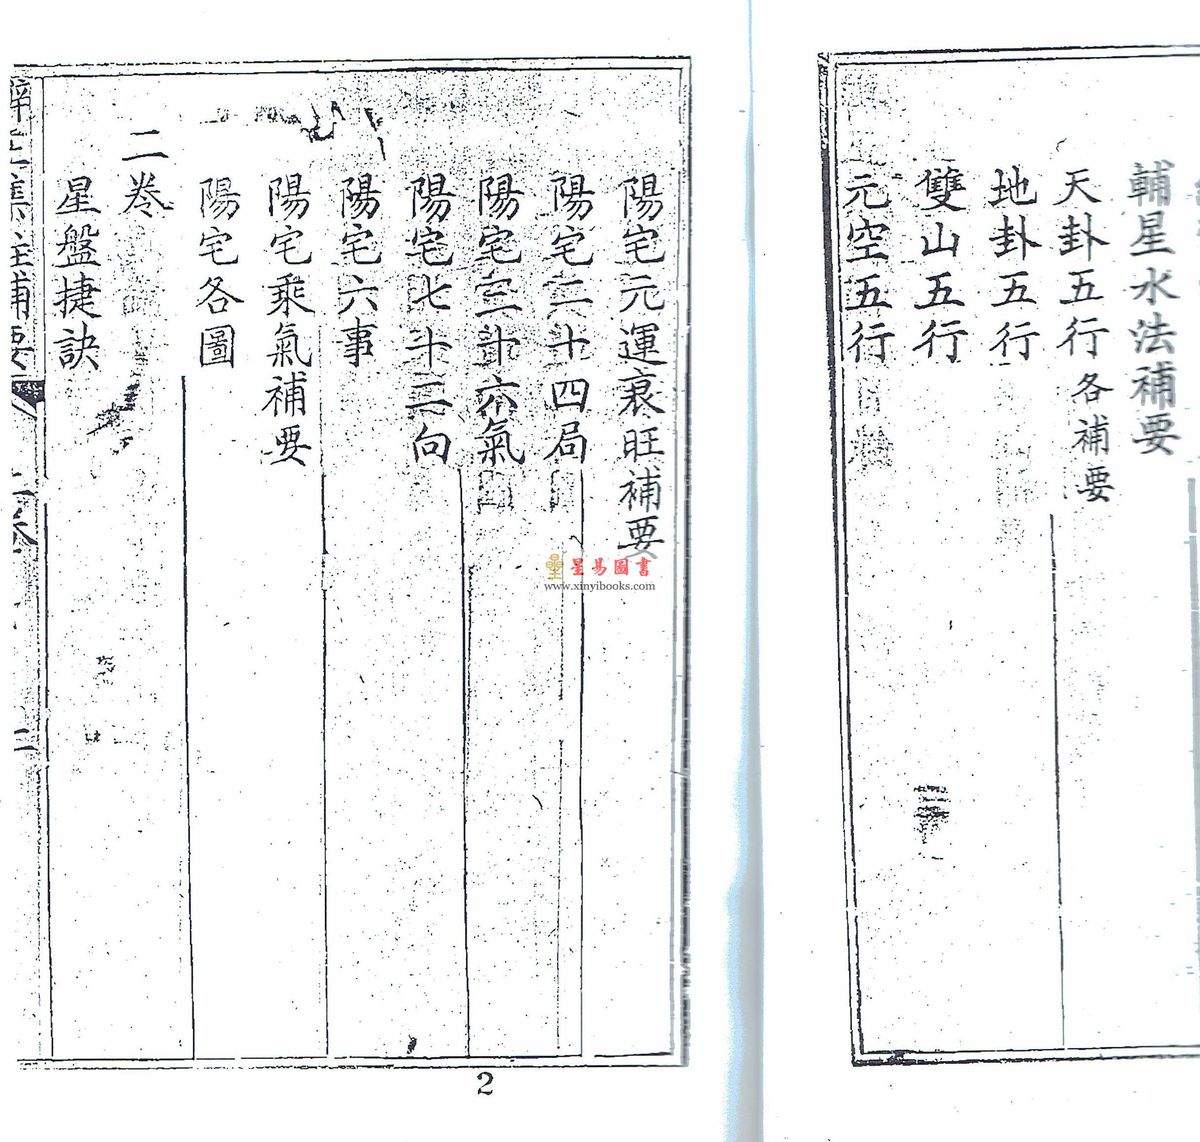 輔星水法補要
天卦五行各補要
地卦五行
雙山五行
元空五行
陽宅元運衰旺補要
陽宅二十四局
陽宅三十六氣
陽宅七十二向
陽宅六事
陽宅乘氣補要
陽宅各圖
二卷
星盤捷訣
集註補要
二
2
星易圖書
www.xinyibooks.com